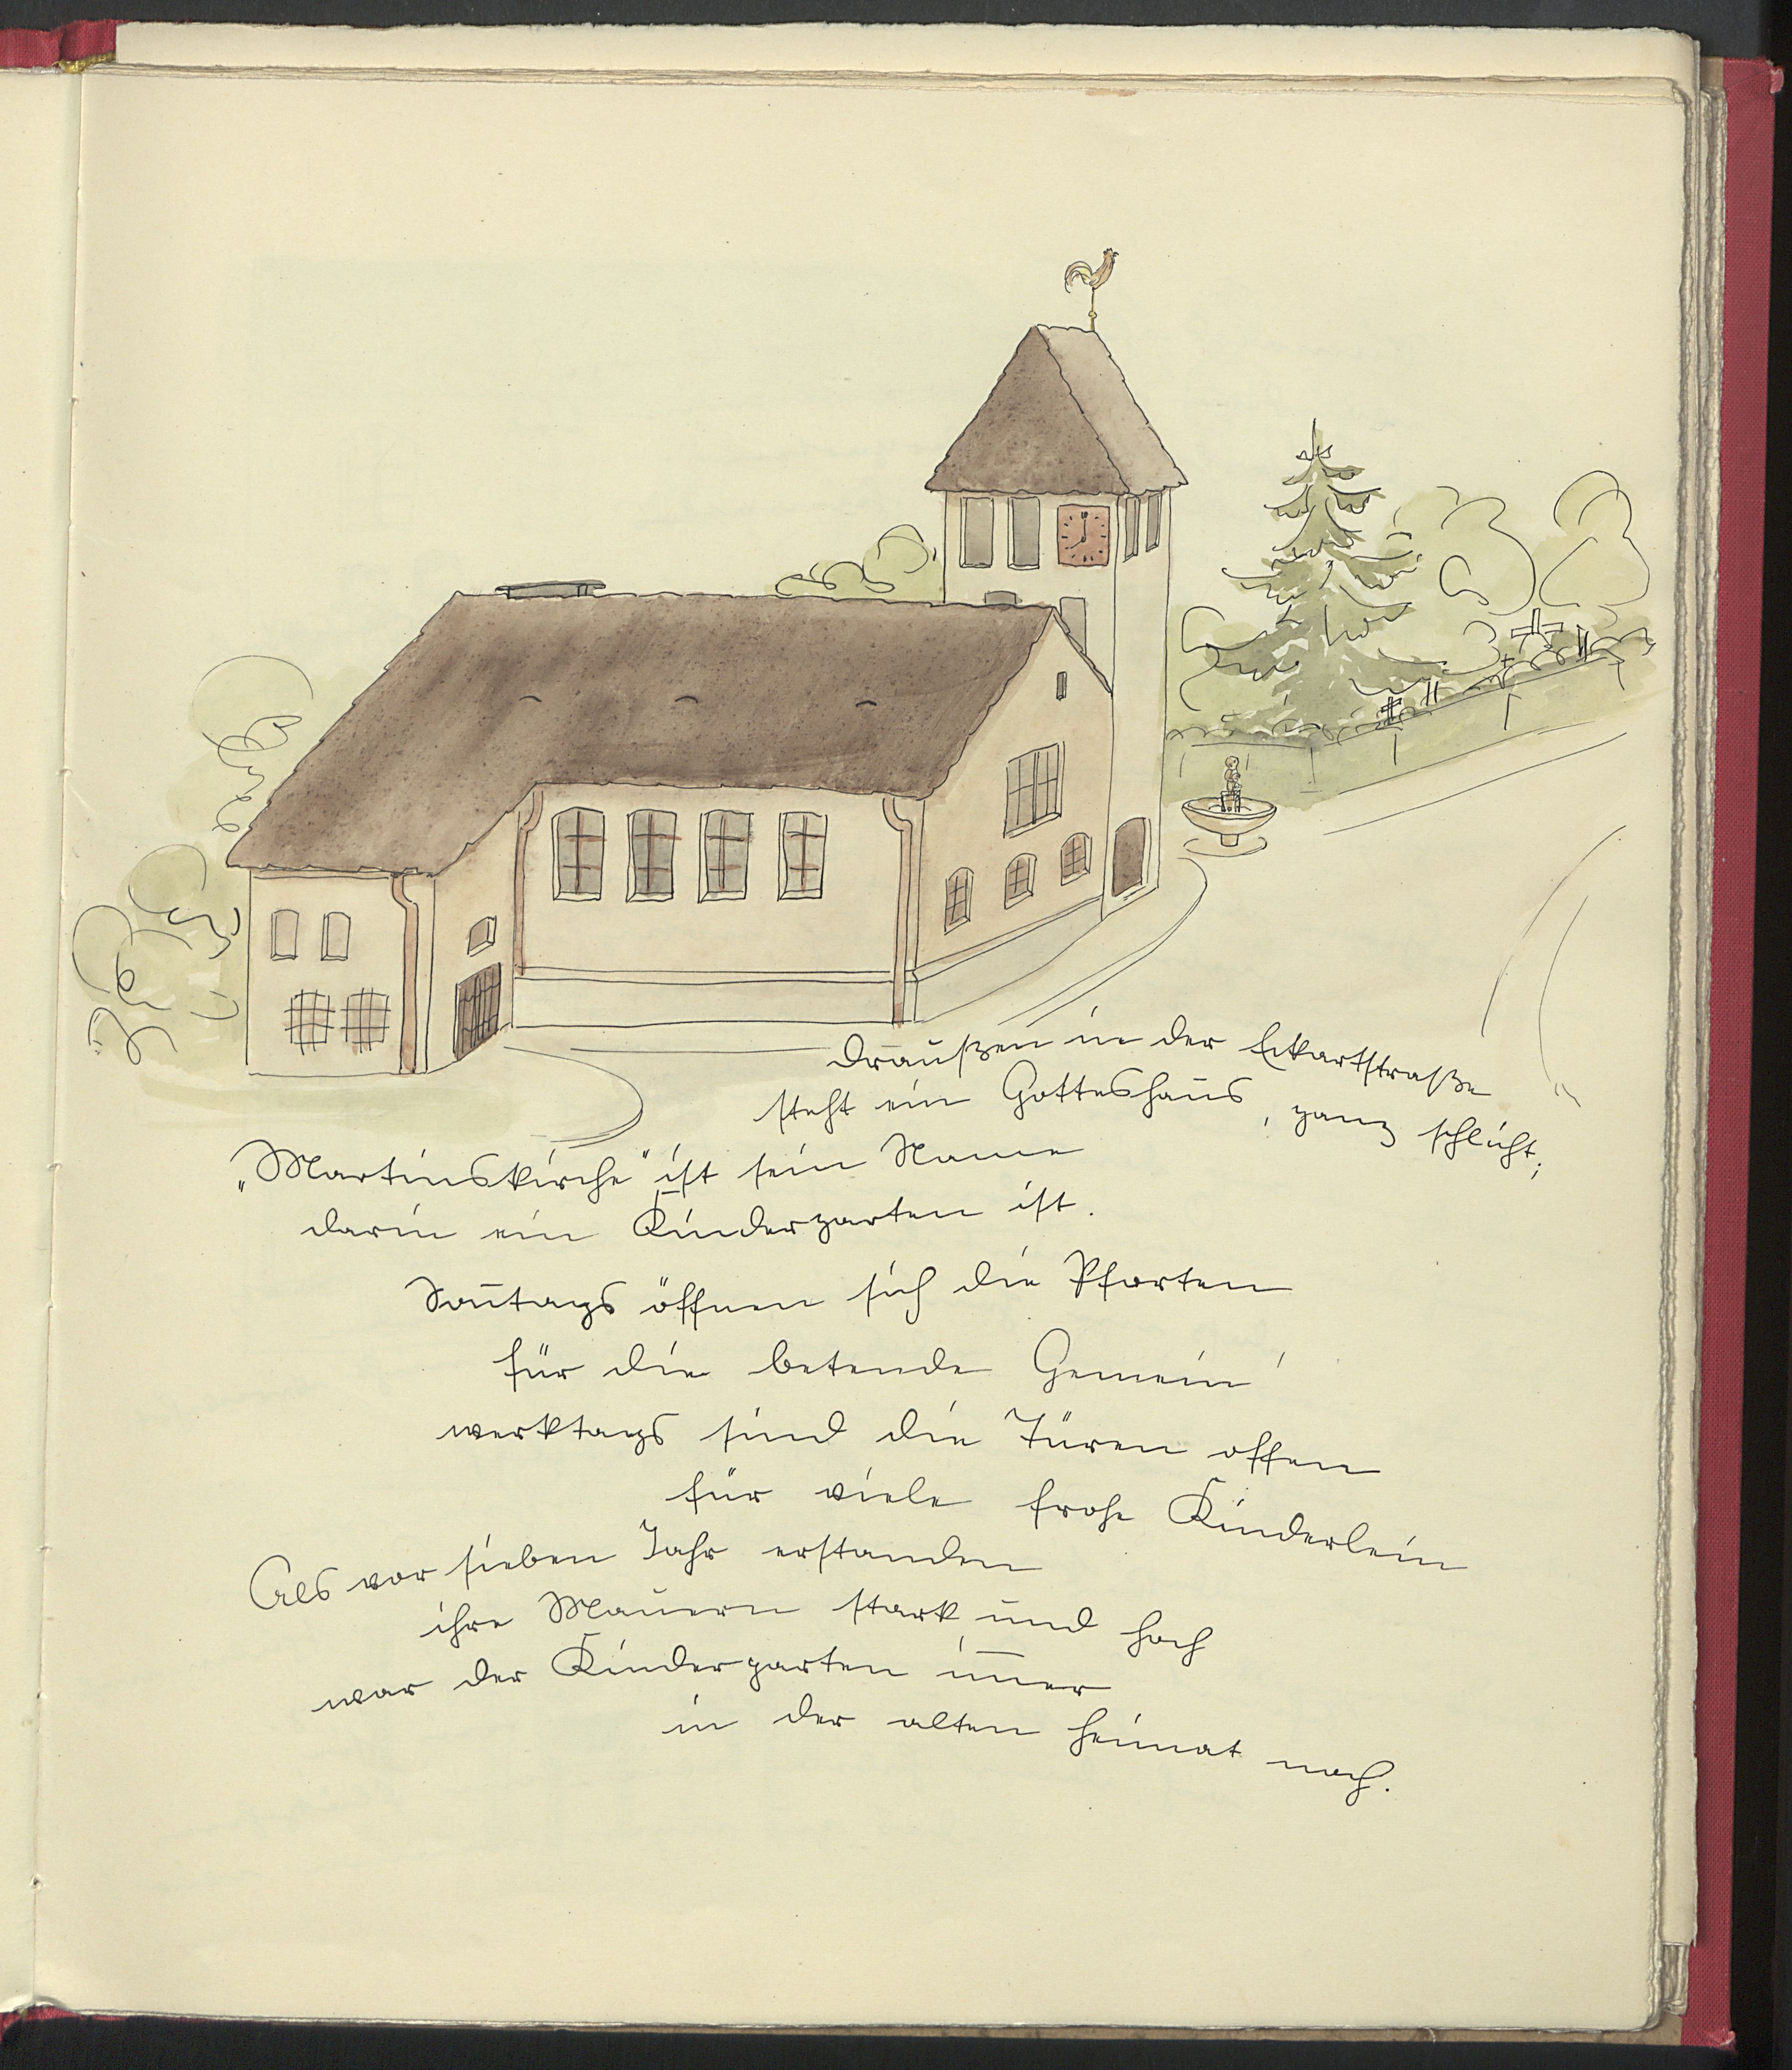 draußen in der Eckartstraße
steht ein Gotteshaus, ganz schlicht;
„Martinskirche" ist sein Name
darin ein Kindergarten ist.
Soñtags öffnen sich die Pforten
für die betende Gemein'
werktags sind die Türen offen
für viele frohe Kinderlein
Als vor sieben Jahr erstanden
ihre Mauern stark und hoch
war der Kindergarten im̅er
in der alten Heimat noch.